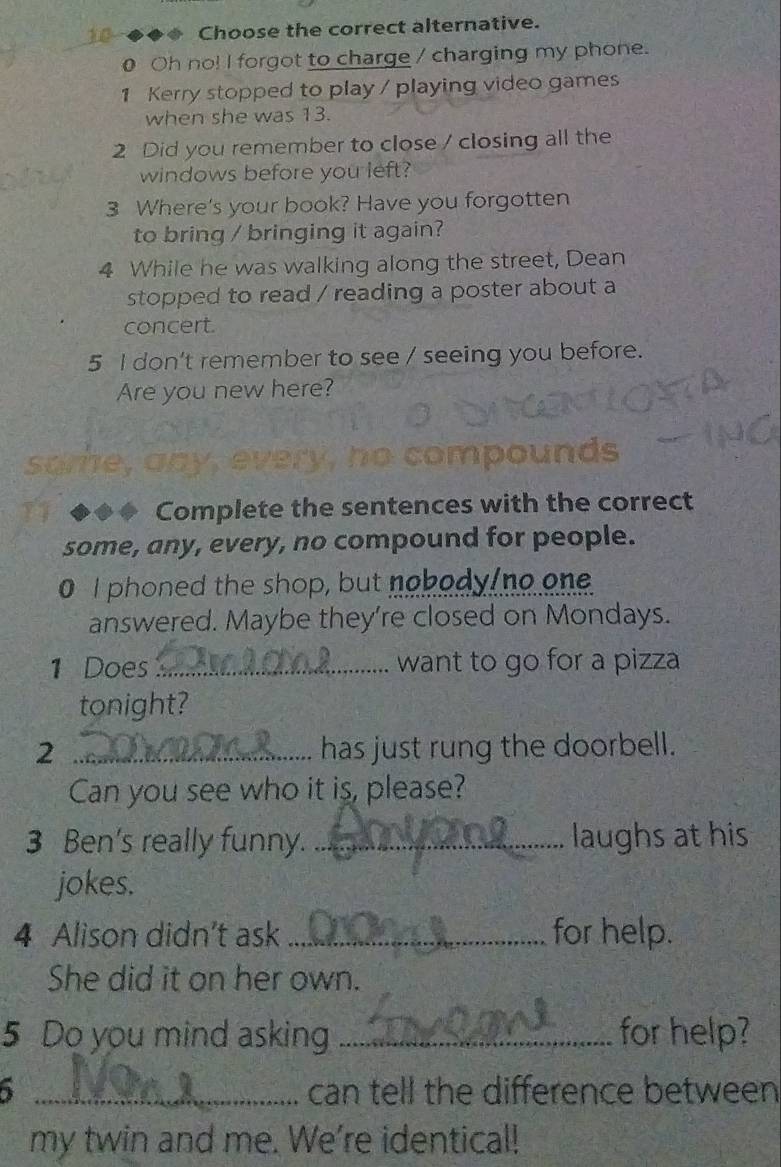 10 Choose the correct alternative.
0 Oh no! I forgot to charge / charging my phone.
1 Kerry stopped to play / playing video games
when she was 13.
2 Did you remember to close / closing all the
windows before you left?
3 Where's your book? Have you forgotten
to bring / bringing it again?
4 While he was walking along the street, Dean
stopped to read / reading a poster about a
concert.
5 I don't remember to see / seeing you before.
Are you new here?
- ING
some, any, every, no compounds
11 Complete the sentences with the correct
some, any, every, no compound for people.
0 I phoned the shop, but nobody/no one
answered. Maybe they're closed on Mondays.
1 Does someone want to go for a pizza
tonight?
2 someone has just rung the doorbell.
Can you see who it is, please?
3 Ben's really funny. Anyone laughs at his
jokes.
4 Alison didn't ask for help.
She did it on her own.
5 Do you mind asking someone for help?
6 None can tell the difference between
my twin and me. We're identical!